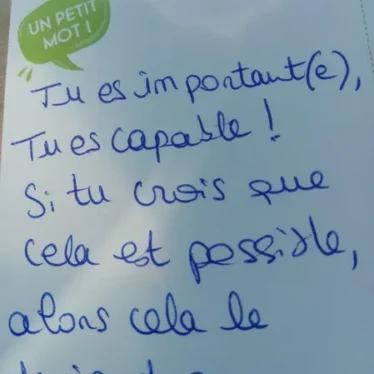 UN PETIT
MOT !
Tu es important(e),
Tu es capable !
Si tu crois que
cela est possible,
alors cela le